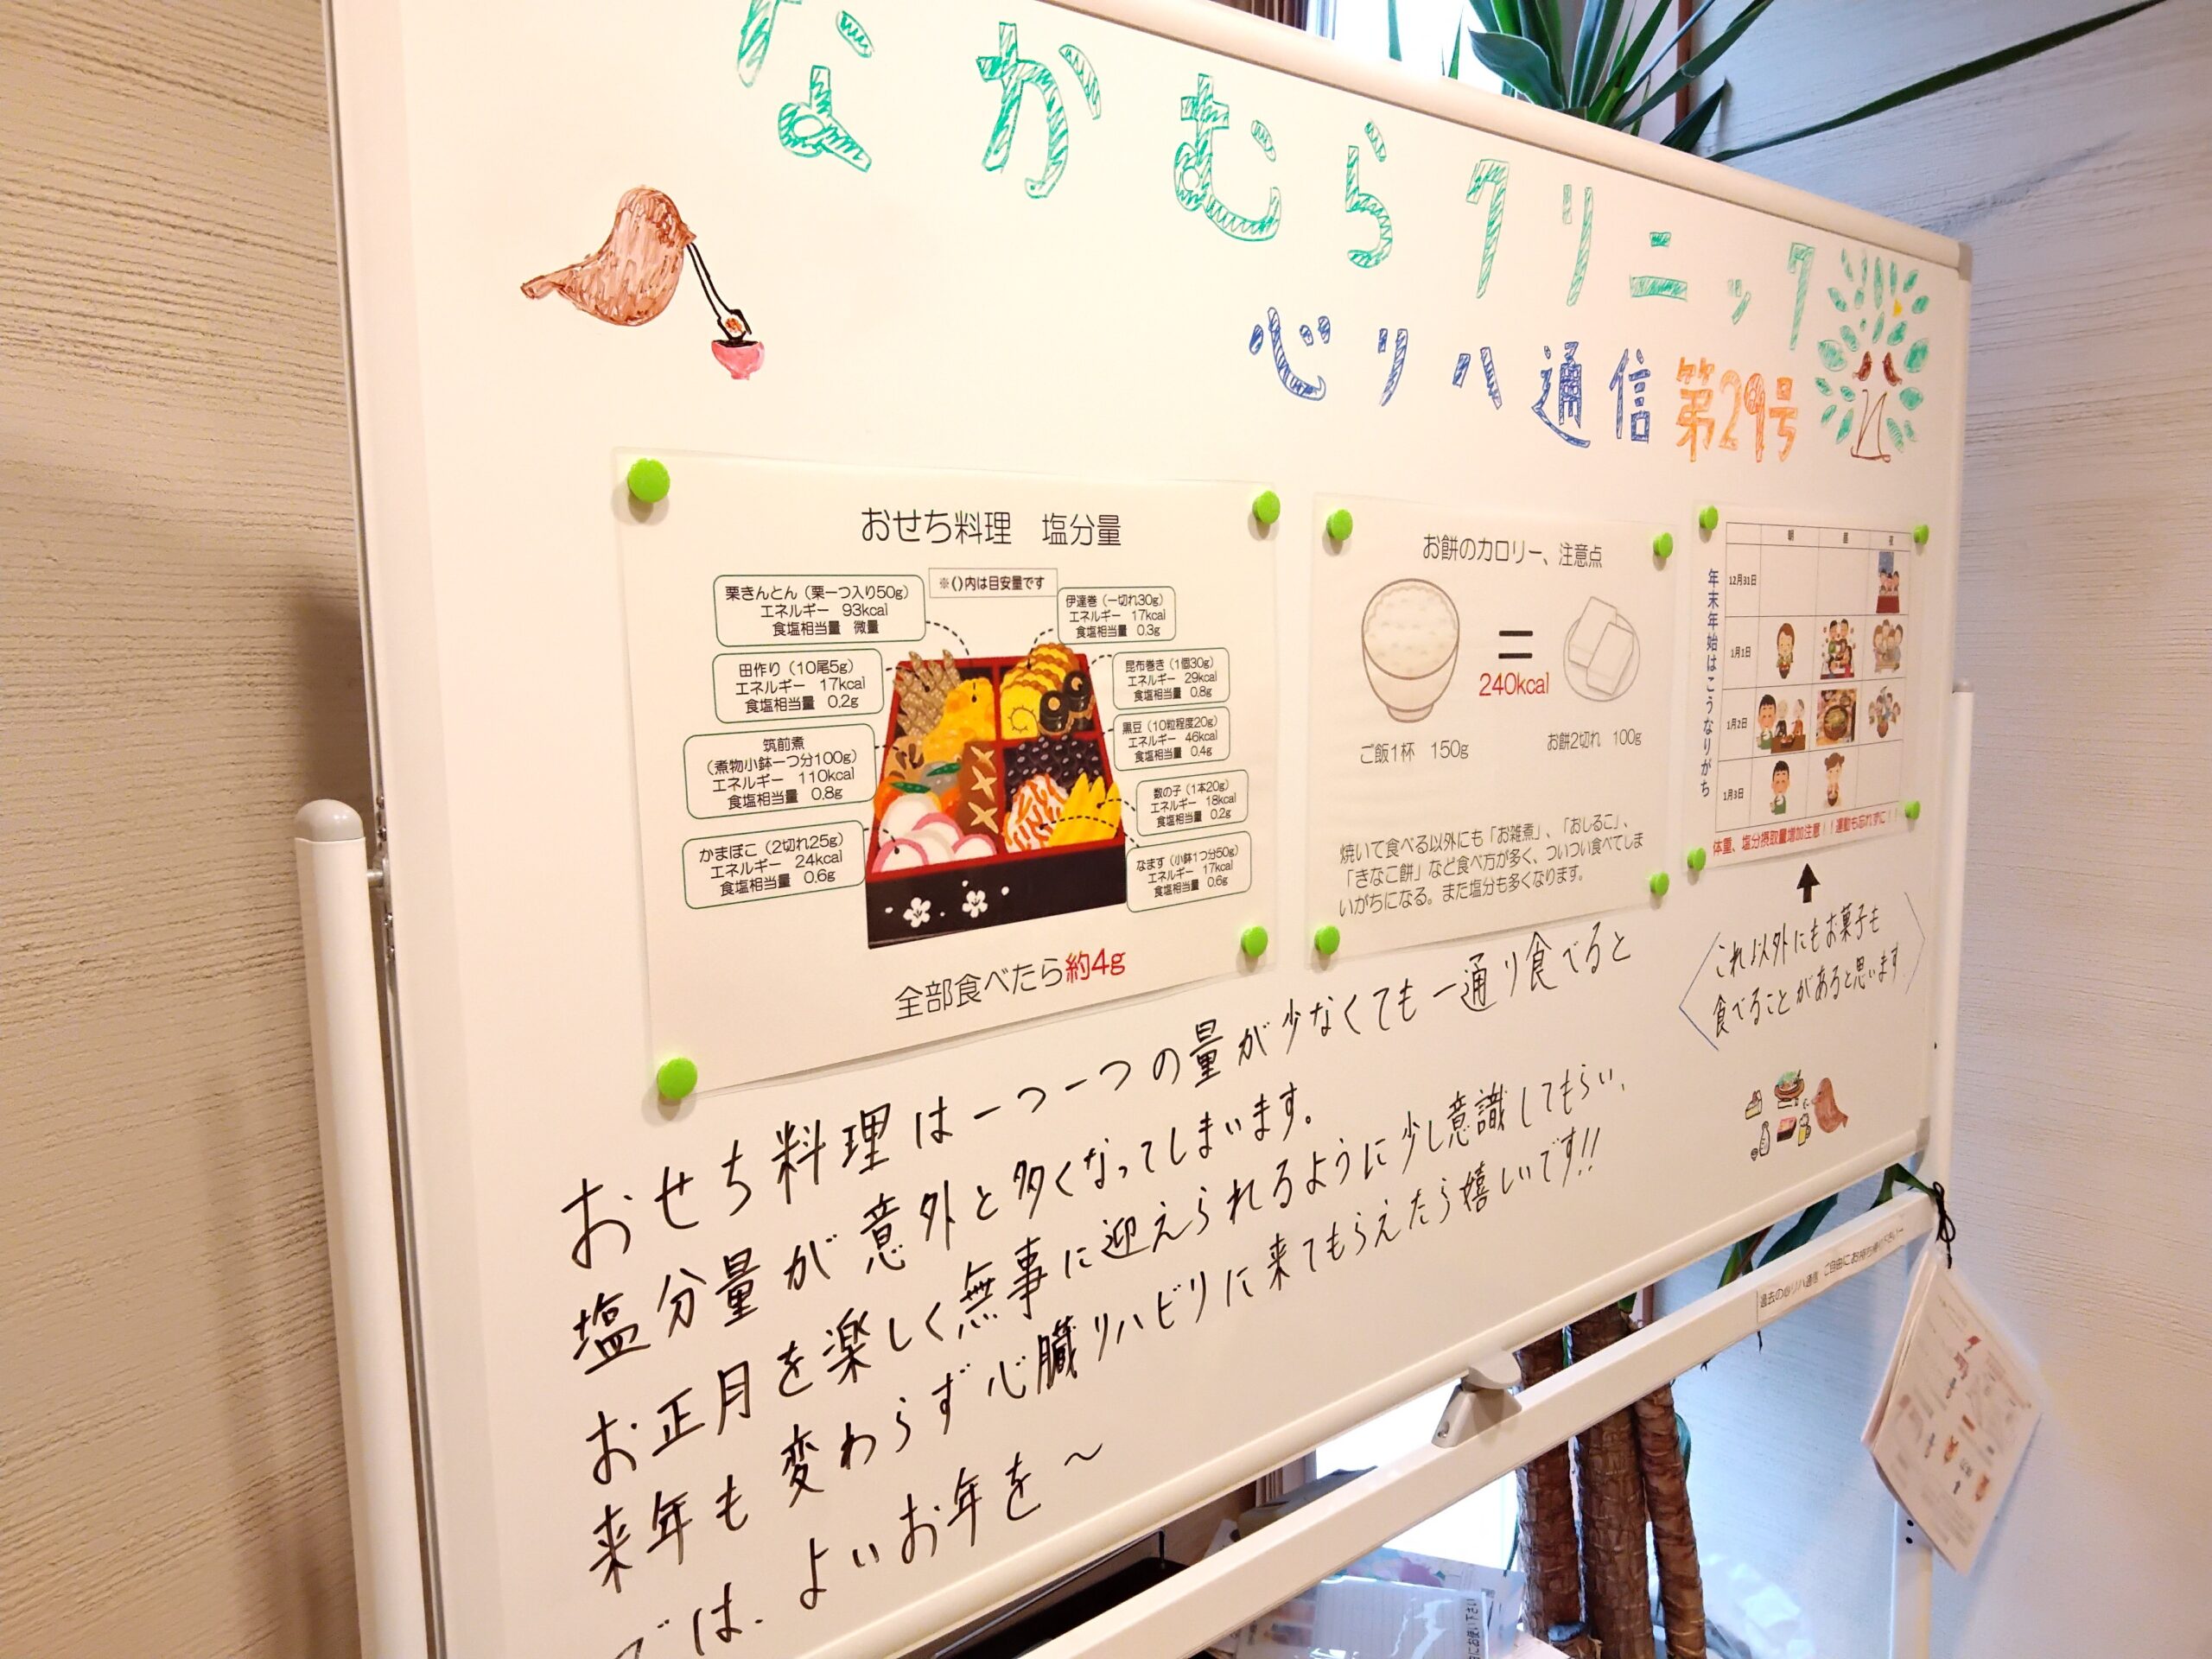 なかむらクリニック
心リハ通信 第29号
おせち料理 塩分量
※()内は目安量です
栗きんとん（栗一つ入り50g）
エネルギー 93kcal
食塩相当量 微量
田作り（10尾5g）
エネルギー 17kcal
食塩相当量 0.2g
筑前煮
（煮物小鉢一つ分100g）
エネルギー 110kcal
食塩相当量 0.8g
かまぼこ（2切れ25g）
エネルギー 24kcal
食塩相当量 0.6g
伊達巻（一切れ30g）
エネルギー 17kcal
食塩相当量 0.3g
昆布巻き（1個30g）
エネルギー 29kcal
食塩相当量 0.8g
黒豆（10粒程度20g）
エネルギー 46kcal
食塩相当量 0.4g
数の子（1本20g）
エネルギー 18kcal
食塩相当量 0.2g
なます（小鉢1つ分50g）
エネルギー 17kcal
食塩相当量 0.6g
全部食べたら約4g
お餅のカロリー、注意点
＝
240kcal
ご飯1杯 150g
お餅2切れ 100g
焼いて食べる以外にも「お雑煮」、「おしるこ」、
「きなこ餅」など食べ方が多く、ついつい食べてしま
いがちになる。また塩分も多くなります。
年末年始はこうなりがち
朝 昼 夜
12月31日
1月1日
1月2日
1月3日
体重、塩分摂取量増加注意！！運動も忘れずに！！
これ以外にもお菓子も
食べることがあると思います
おせち料理は一つ一つの量が少なくても一通り食べると
塩分量が意外と多くなってしまいます。
お正月を楽しく無事に迎えられるように少し意識してもらい、
来年も変わらず心臓リハビリに来てもらえたら嬉しいです!!
では、よいお年を～
過去の心リハ通信 ご自由にお持ち帰り下さい